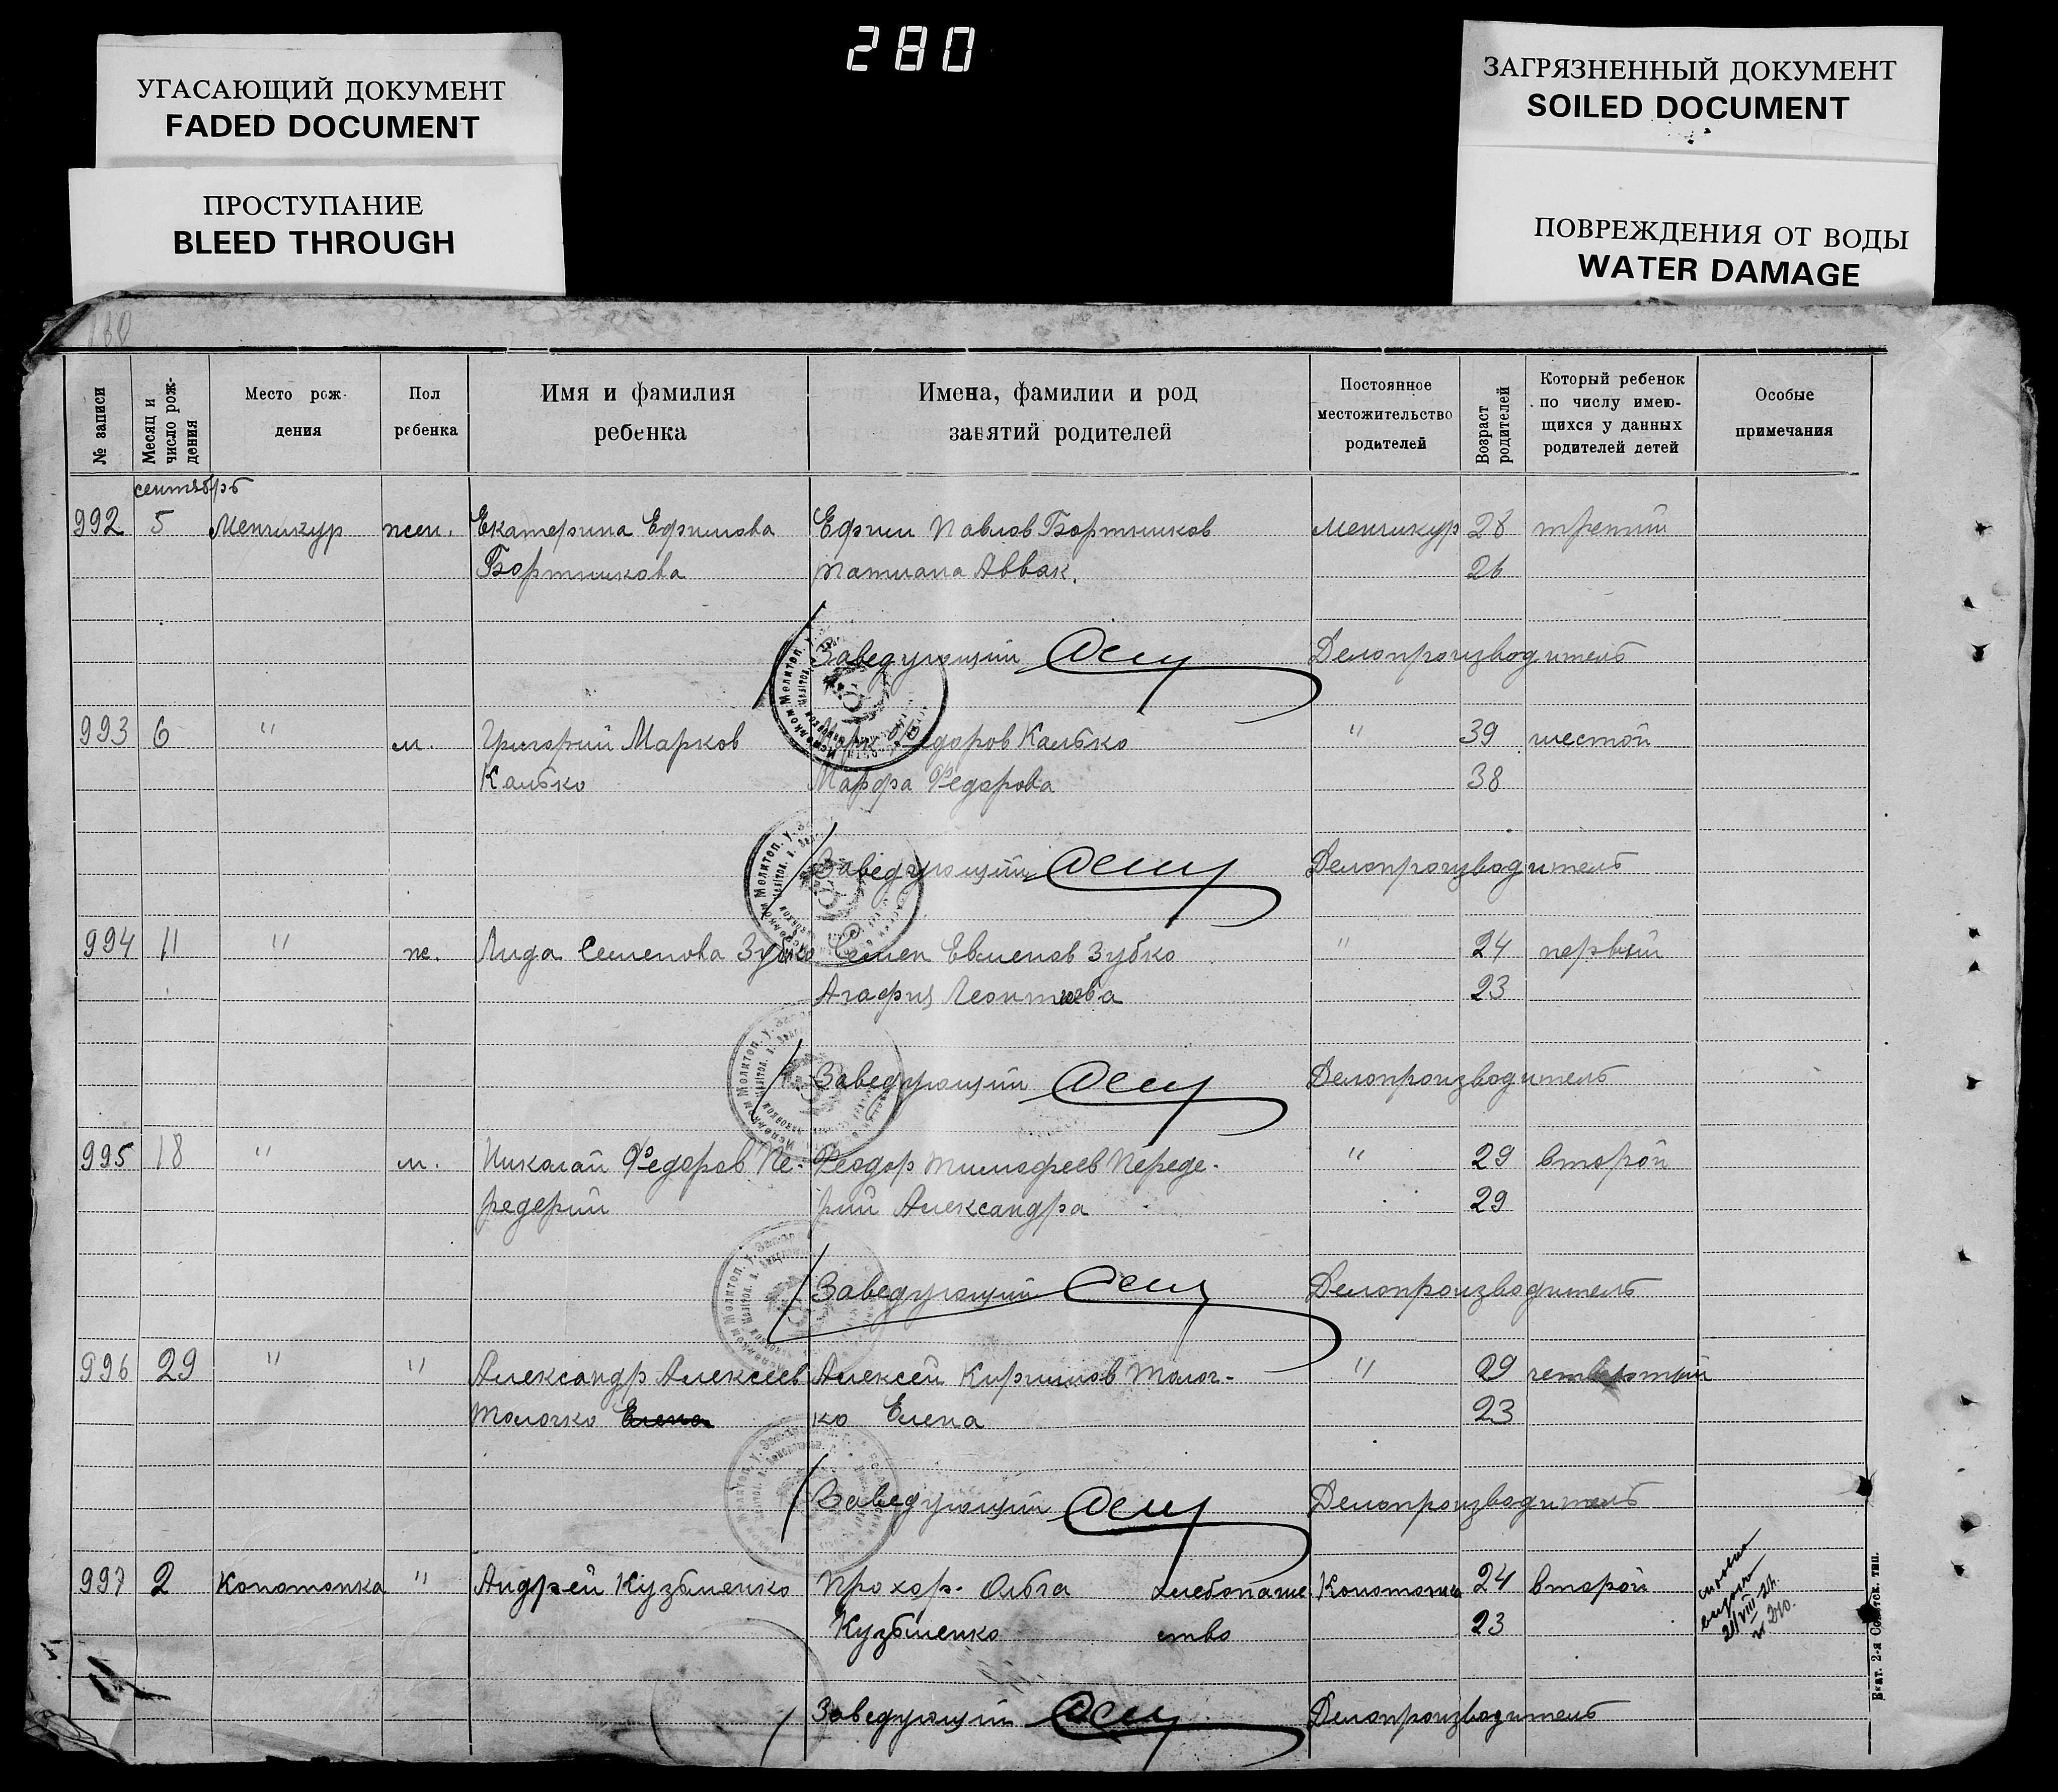 280
УГАСАЮЩИЙ ДОКУМЕНТ
FADED DOCUMENT
ПРОСТУПАНИЕ
BLEED THROUGH
ЗАГРЯЗНЕННЫЙ ДОКУМЕНТ
SOILED DOCUMENT
ПОВРЕЖДЕНИЯ ОТ ВОДЫ
WATER DAMAGE
№ записи
Месяц и число рождения
Место рож-
дения
Пол
ребенка
Имя и фамилия
ребенка
Имена, фамилии и род
занятий родителей
Постоянное
местожительство
родителей
Возраст
родителей
Который ребенок
по числу имею-
щихся у данных
родителей детей
Особые
примечания
сентябрь
992 5 Менчикур жен. Екатерина Ефимова Ефим Павлов Бортников Менчикур 28 третий
Бортникова Татиана Аввак. 26
Заведующий Делопроизводитель
993 6 " м. Григорий Марков Марк Федоров Калько " 39 шестой
Калько Марфа Федорова 38
Заведующий Делопроизводитель
994 11 " ж. Лида Семенова Зубко Семен Евменов Зубко " 24 первый
Агафия Леонтиева 23
Заведующий Делопроизводитель
995 18 " м. Николай Федоров Пе- Феодор Тимофеев Переде- " 29 второй
редерий рий Александра 29
Заведующий Делопроизводитель
996 29 " " Александр Алексеев Алексей Кирилов Толоч- " 29 четвертый
Толочко Елена ко Елена 23
Заведующий Делопроизводитель
997 2 Копотопка " Андрей Кузьменко Прохор. Ольга хлебопаше Копотопка 24 второй
Кузьменко ство 23
Заведующий Делопроизводитель